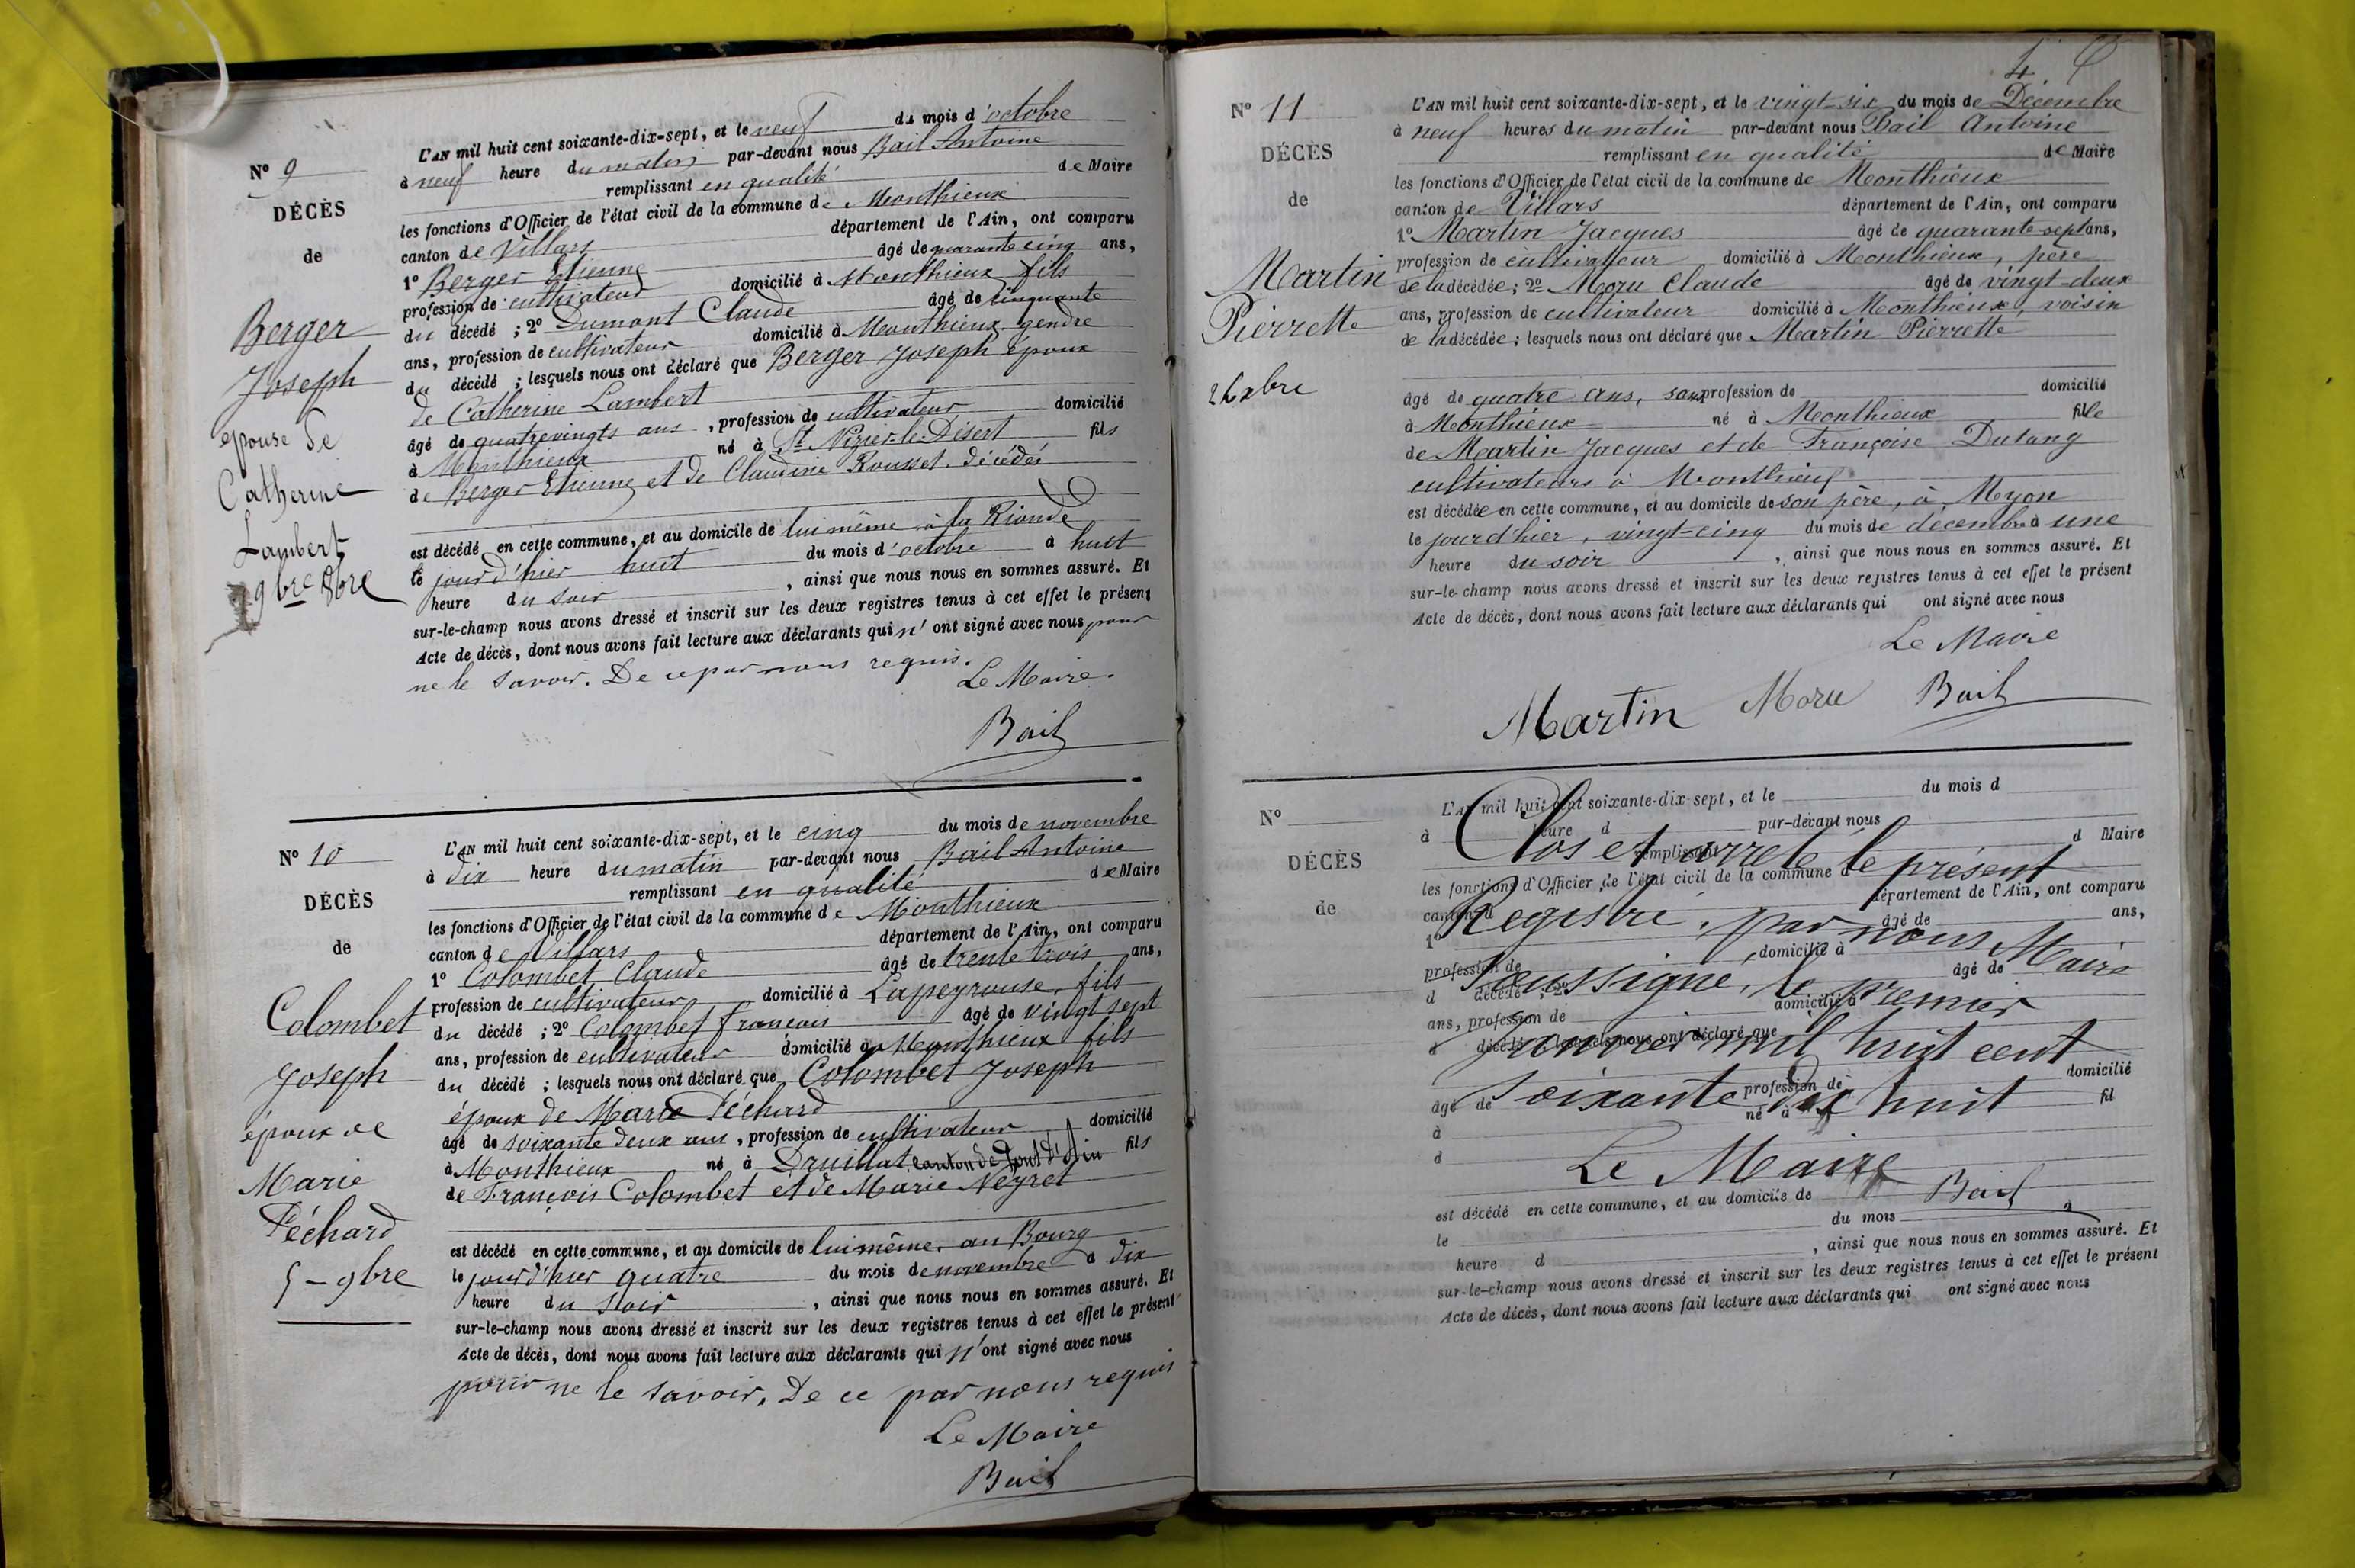 N° 9
DÉCÈS
de
Berger
Joseph
épouse de
Catherine
Lambert
9bre 8bre
L'AN mil huit cent soixante-dix-sept, et le neuf du mois d'octobre
à neuf heure du matin par-devant nous Bail Antoine
remplissant en qualité de Maire
les fonctions d'Officier de l'état civil de la commune de Monthieux
canton de Villars département de l'Ain, ont comparu
1° Berger Etienne âgé de quarante cinq ans,
profession de cultivateur domicilié à Monthieux fils
du décédé ; 2° Dumont Claude âgé de cinquante
ans, profession de cultivateur domicilié à Monthieux gendre
du décédé ; lesquels nous ont déclaré que Berger Joseph époux
de Catherine Lambert
âgé de quatrevingts ans, profession de cultivateur domicilié
à Monthieux né à St Nizier-le-Désert fils
de Berger Etienne et de Claudine Rousset. décédés
est décédé en cette commune, et au domicile de lui même à la Rionde
le jour d'hier huit du mois d'octobre à huit
heure du soir, ainsi que nous nous en sommes assuré. Et
sur-le-champ nous avons dressé et inscrit sur les deux registres tenus à cet effet le présent
Acte de décès, dont nous avons fait lecture aux déclarants qui n'ont signé avec nous pour
ne le savoir. De ce par nous requis.
Le Maire.
Bail
N° 10
DÉCÈS
de
Colombet
Joseph
époux de
Marie
Féchard
5 - 9bre
L'AN mil huit cent soixante-dix-sept, et le cinq du mois de novembre
à dix heure du matin par-devant nous Bail Antoine
remplissant en qualité de Maire
les fonctions d'Officier de l'état civil de la commune de Monthieux
canton de Villars département de l'Ain, ont comparu
1° Colombet Claude âgé de trente trois ans,
profession de cultivateur domicilié à Lapeyrouse, fils
du décédé ; 2° Colombet françois âgé de vingt sept
ans, profession de cultivateur domicilié à Monthieux fils
du décédé ; lesquels nous ont déclaré que Colombet Joseph
époux de Marie Féchard
âgé de soixante deux ans, profession de cultivateur domicilié
à Monthieux né à Druillat canton de Pont d'Ain fils
de François Colombet et de Marie Neyret
est décédé en cette commune, et au domicile de lui même, au Bourg
le jour d'hier quatre du mois de novembre à dix
heure du soir, ainsi que nous nous en sommes assuré. Et
sur-le-champ nous avons dressé et inscrit sur les deux registres tenus à cet effet le présent
Acte de décès, dont nous avons fait lecture aux déclarants qui n'ont signé avec nous
pour ne le savoir. De ce par nous requis
Le Maire
Bail
4
N° 11
DÉCÈS
de
Martin
Pierrette
26 xbre
L'AN mil huit cent soixante-dix-sept, et le vingt-six du mois de Décembre
à neuf heures du matin par-devant nous Bail Antoine
remplissant en qualité de Maire
les fonctions d'Officier de l'état civil de la commune de Monthieux
canton de Villars département de l'Ain, ont comparu
1° Martin Jacques âgé de quarante-sept ans,
profession de cultivateur domicilié à Monthieux, père
de la décédée ; 2° Moru Claude âgé de vingt-deux
ans, profession de cultivateur domicilié à Monthieux, voisin
de la décédée ; lesquels nous ont déclaré que Martin Pierrette
âgé de quatre ans, sans profession de domicilié
à Monthieux né à Monthieux fille
de Martin Jacques et de Françoise Dutang
cultivateurs à Monthieux
est décédée en cette commune, et au domicile de son père, à Myon
le jour d'hier, vingt-cinq du mois de décembre à une
heure du soir, ainsi que nous nous en sommes assuré. Et
sur-le-champ nous avons dressé et inscrit sur les deux registres tenus à cet effet le présent
Acte de décès, dont nous avons fait lecture aux déclarants qui ont signé avec nous
Le Maire
Martin Moru Bail
N°
DÉCÈS
de
L'AN mil huit cent soixante-dix-sept, et le du mois d
à heure d par-devant nous
remplissant d Maire
les fonctions d'Officier de l'état civil de la commune d
canton d département de l'Ain, ont comparu
1° âgé de ans,
profession de domicilié à
d décédé ; 2° âgé de
ans, profession de domicilié à
d décédé ; lesquels nous ont déclaré que
âgé de profession de domicilié
à né à fil
d
Clos et arrêté le présent
Registre, par nous Maire
soussigné, le premier
Janvier mil huit cent
soixante dix huit
Le Maire
Bail
est décédé en cette commune, et au domicile de
le du mois à
heure d, ainsi que nous nous en sommes assuré. Et
sur-le-champ nous avons dressé et inscrit sur les deux registres tenus à cet effet le présent
Acte de décès, dont nous avons fait lecture aux déclarants qui ont signé avec nous